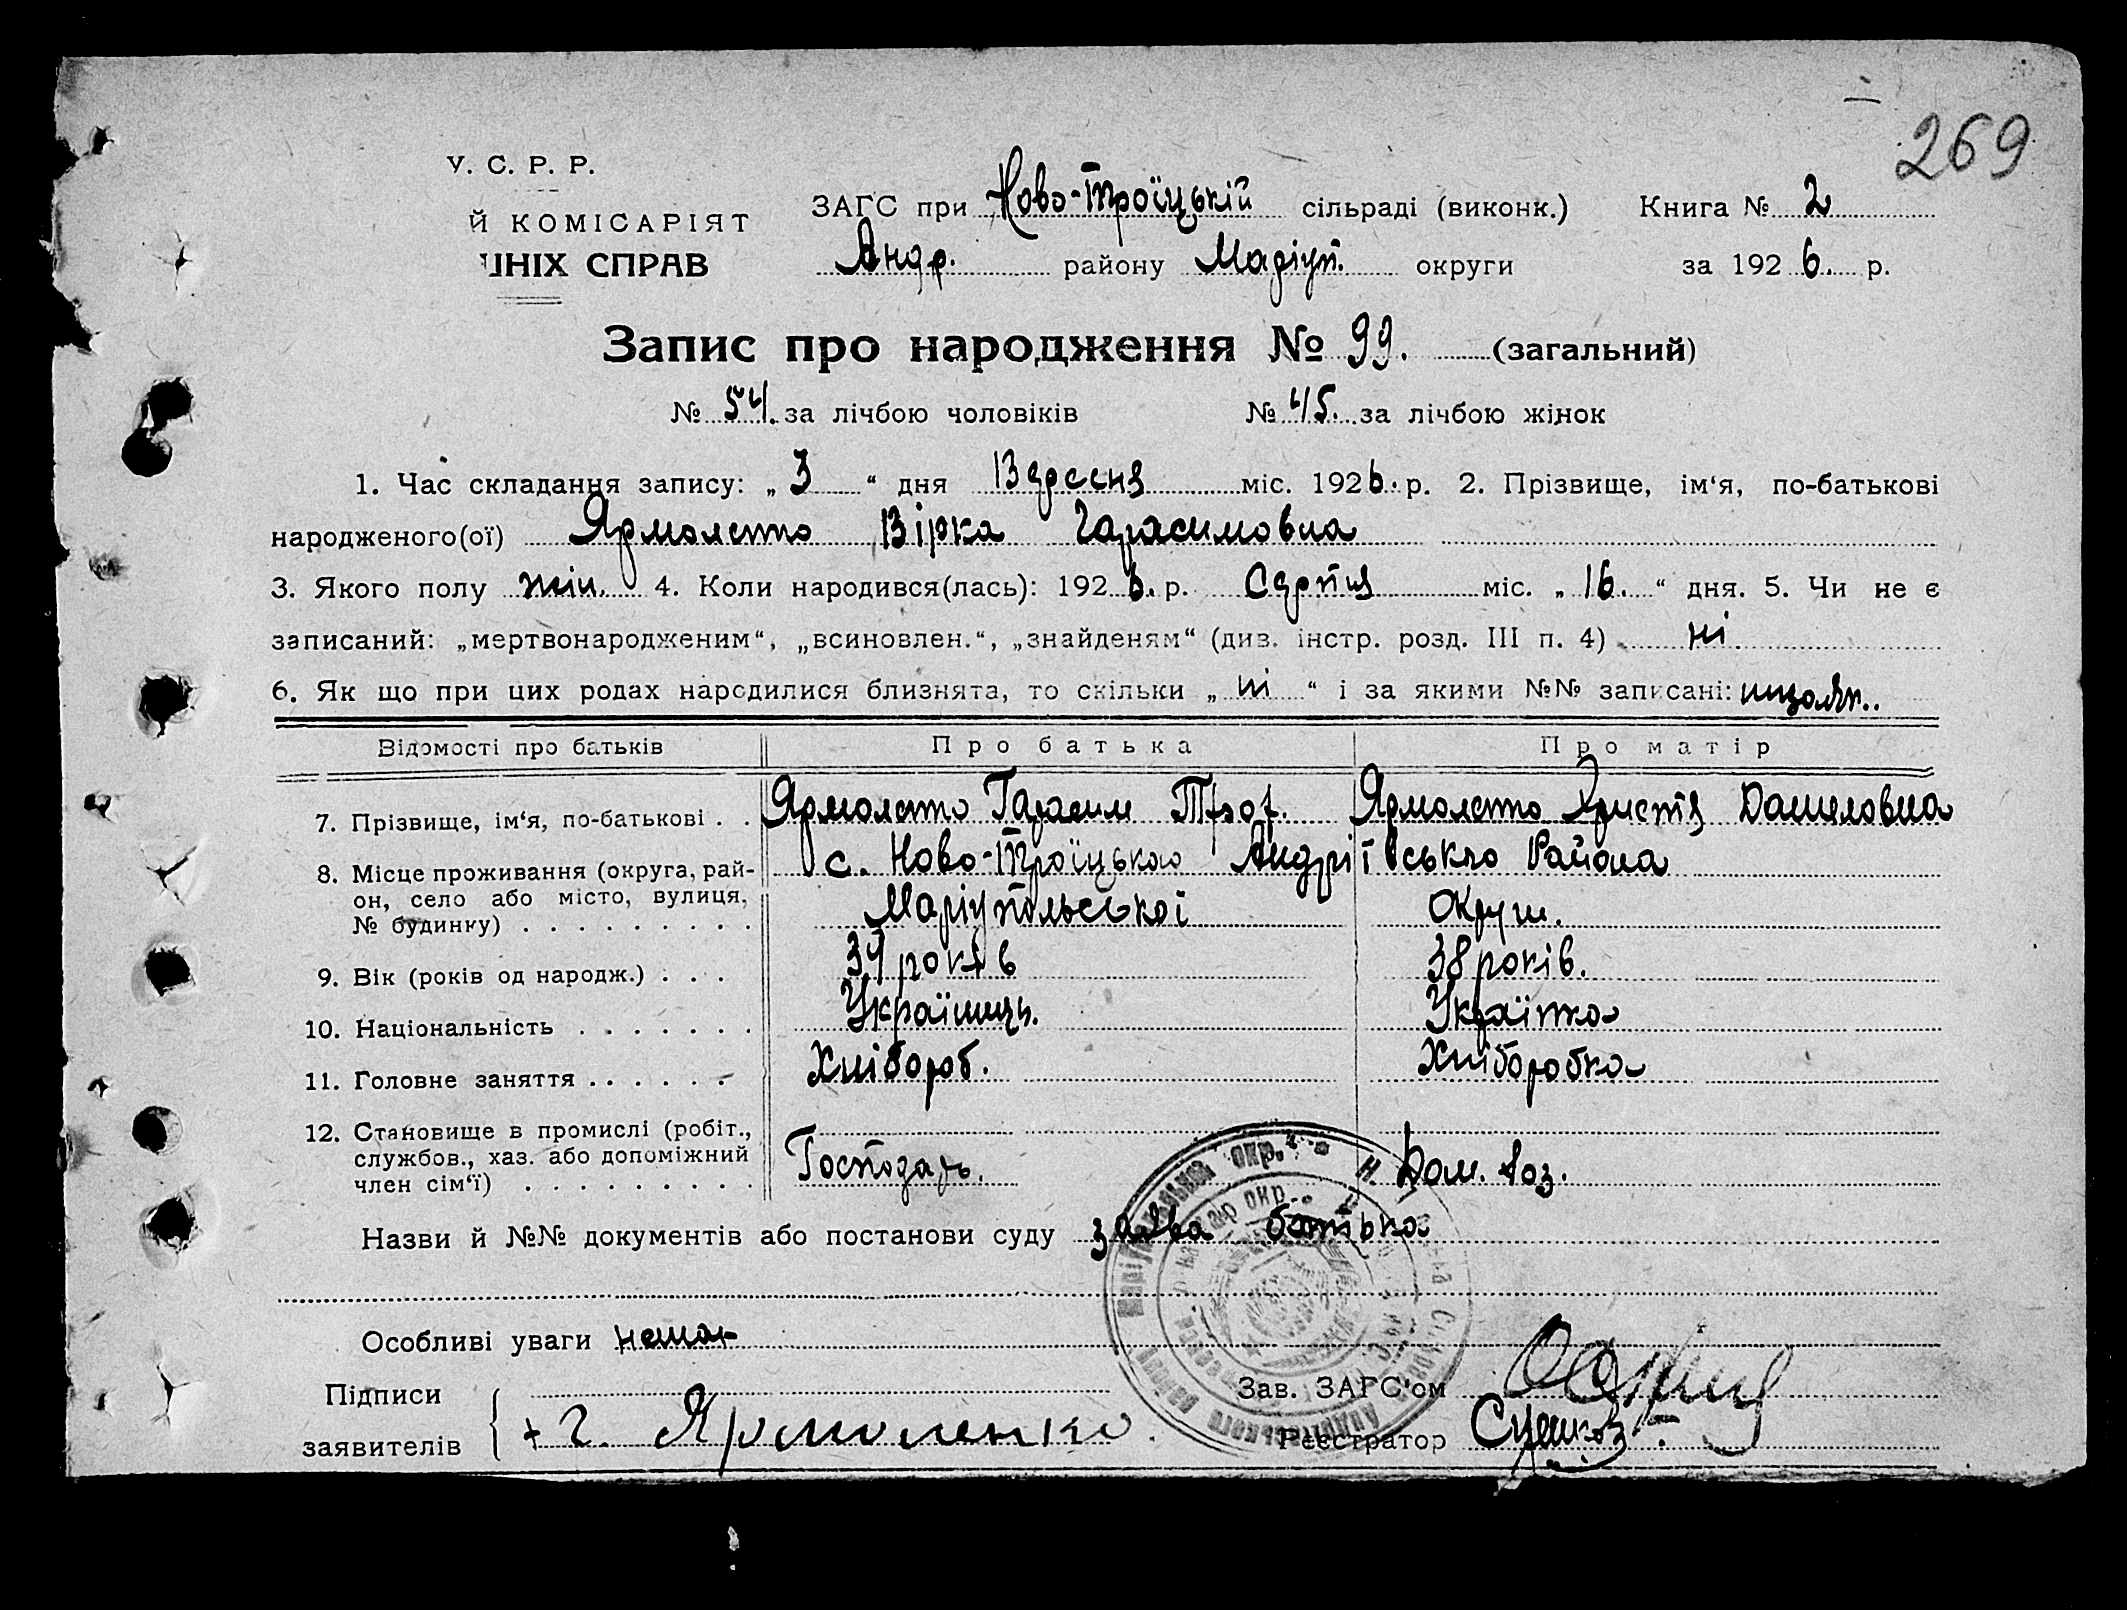 269
У. С. Р. Р.
Й КОМІСАРІЯТ
ШНІХ СПРАВ
ЗАГС при Ново-Троїцькій сільраді (виконк.) Книга № 2
Андр. району Маріуп. округи за 1926. р.
Запис про народження № 99. (загальний)
№ 54. за лічбою чоловіків № 45. за лічбою жінок
1. Час складання запису: „ 3 “ дня Вересня міс. 1926. р. 2. Прізвище, ім‘я, по-батькові
народженого(ої) Ярмоленко Вірка Гарасимовна
3. Якого полу жін. 4. Коли народився(лась): 1926. р. Серпня міс. „ 16. “ дня. 5. Чи не є
записаний: „мертвонародженим“, „всиновлен.“, „знайденям“ (див. інстр. розд. III п. 4) ні
6. Як що при цих родах народилися близнята, то скільки „ ні “ і за якими №№ записані:
Відомості про батьків Про батька Про матір
7. Прізвище, ім‘я, по-батькові . . Ярмоленко Гарасим Ярмоленко Христя Даниловна
8. Місце проживання (округа, рай-
он, село або місто, вулиця,
№ будинку) . . . . . . . . .
с. Ново-Троїцького Андріївського Района
Маріупольської Округи.
9. Вік (років од народж.) . . . 39 років 38 років.
10. Національність . . . . . . . Українець. Українка
11. Головне заняття . . . . . . Хлібороб. Хліборобка
12. Становище в промислі (робіт.,
службов., хаз. або допоміжний
член сім‘ї) . . . . . . . . .
Господарь. Дом. Хоз.
Назви й №№ документів або постанови суду заява батька
Особливі уваги немає
Підписи
заявителів
+ Г. Ярмоленко.
Зав. ЗАГС‘ом
Реєстратор